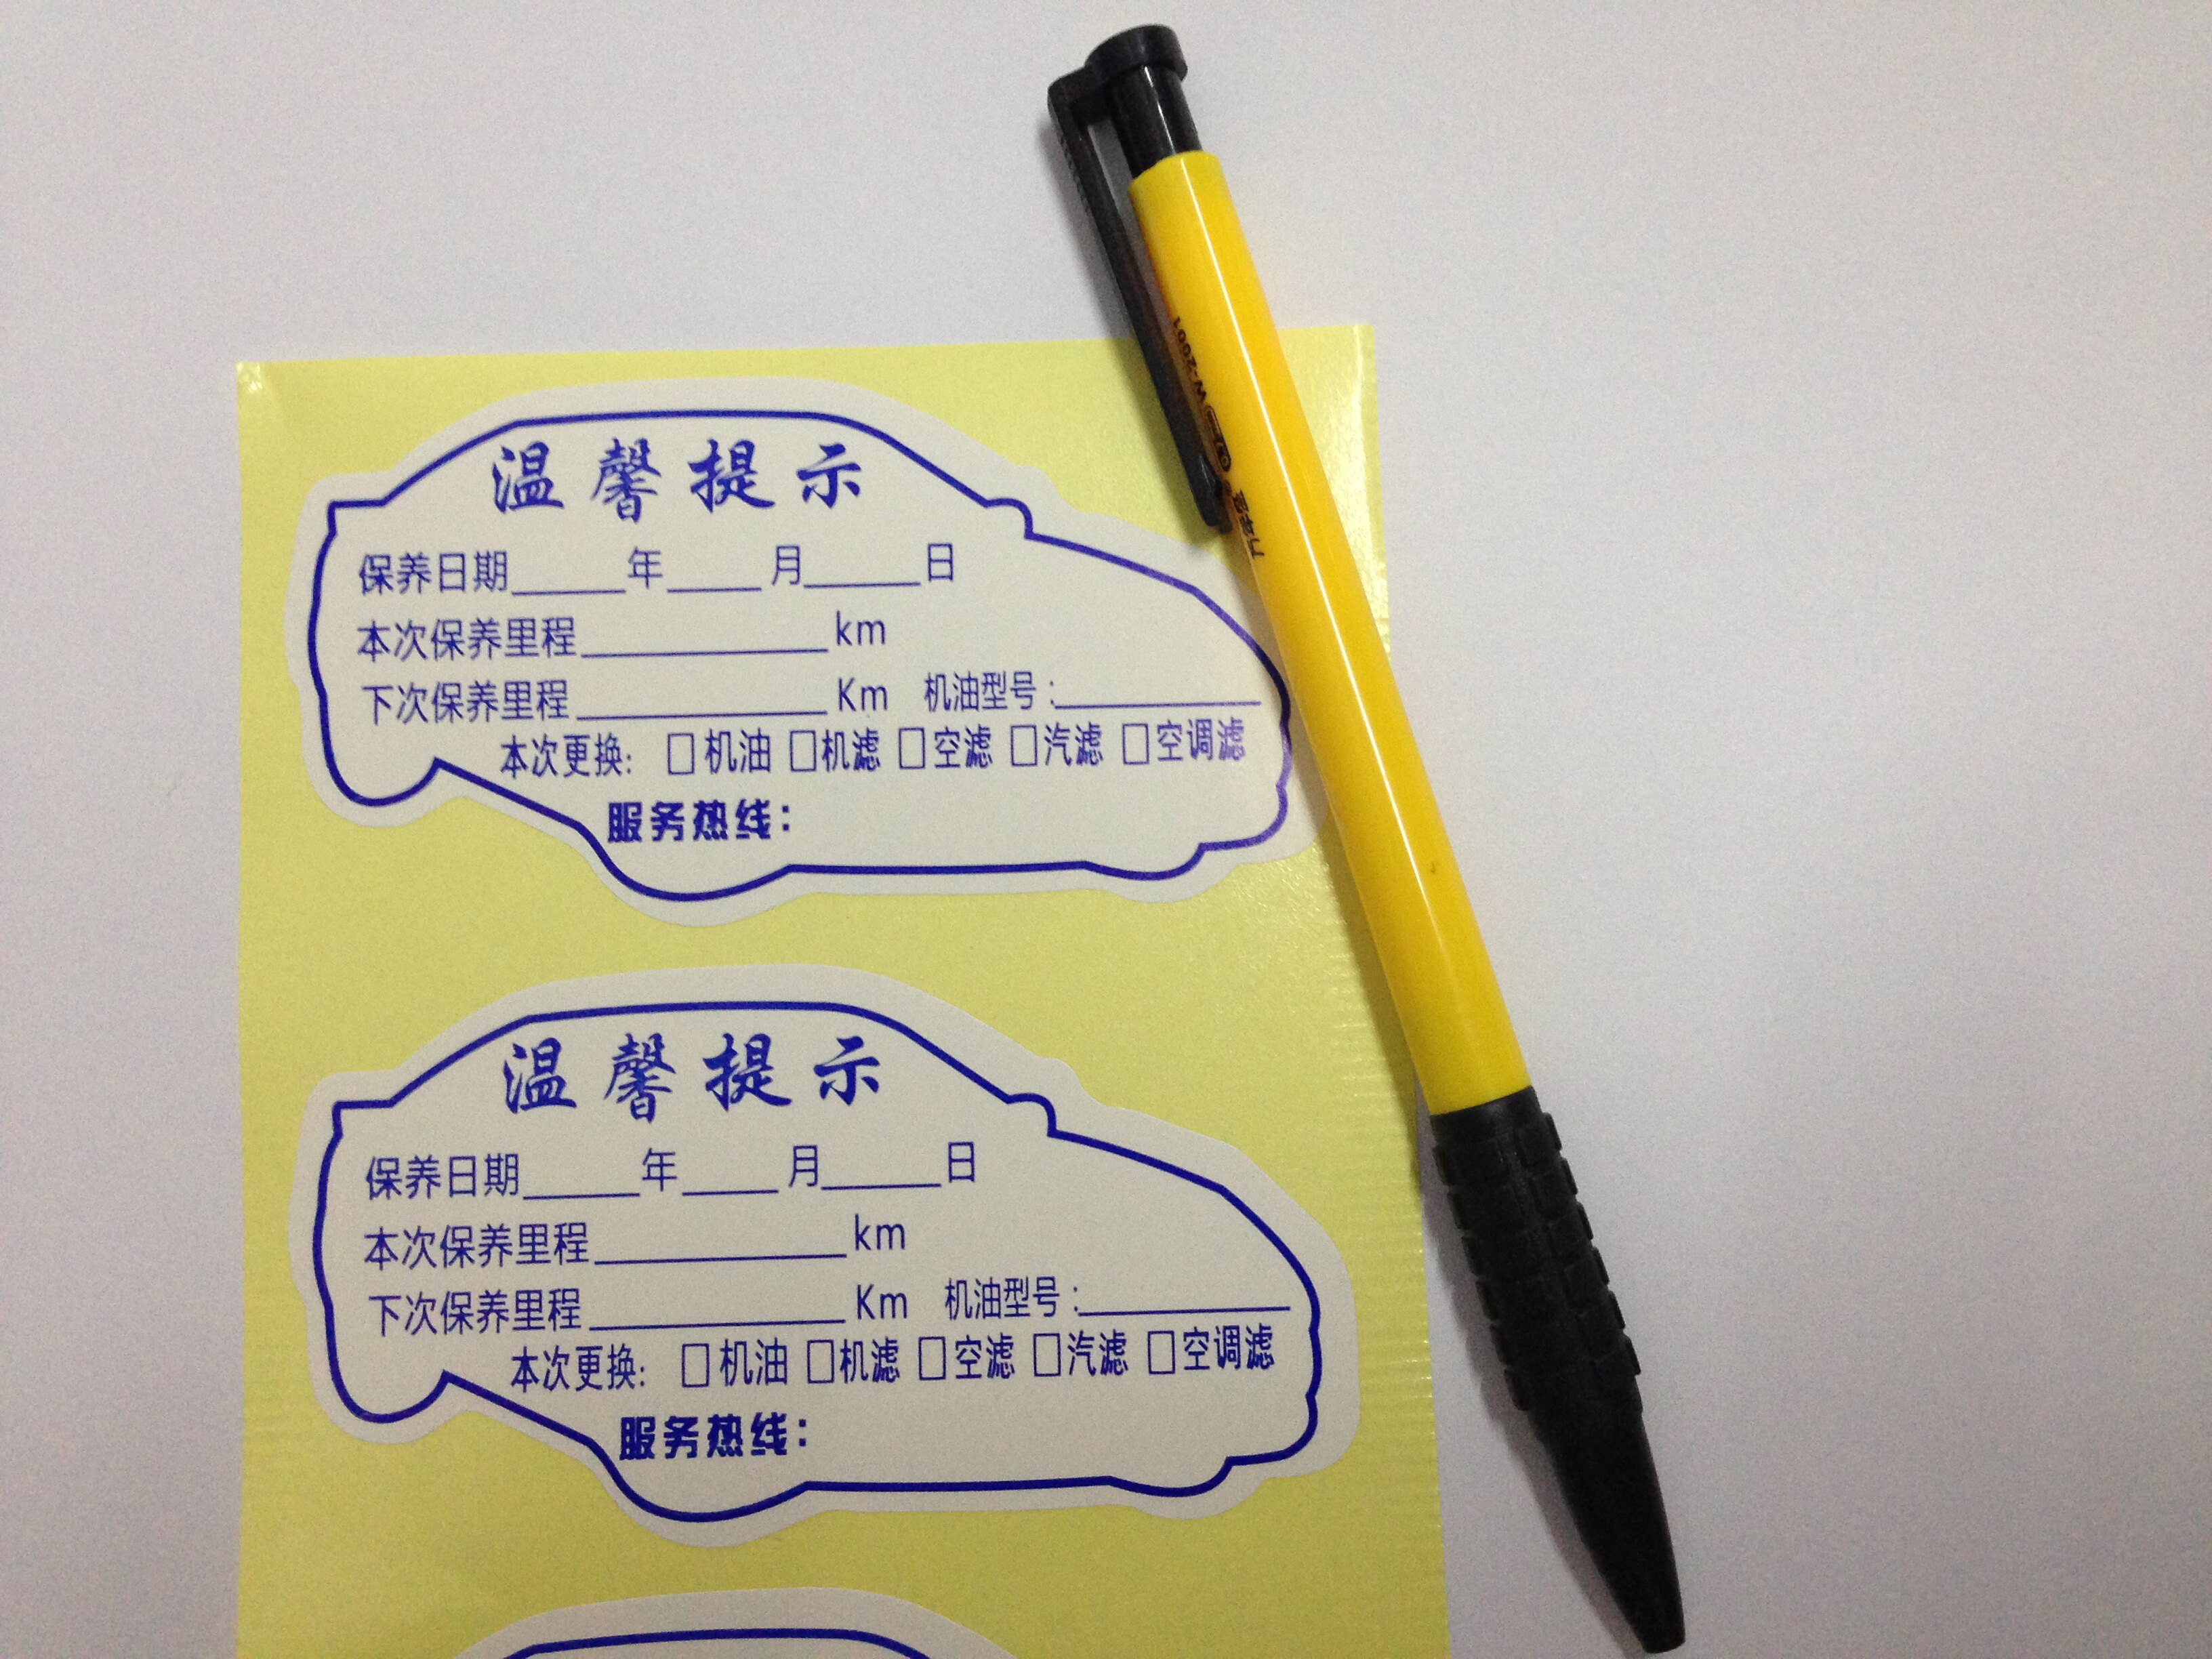 温馨提示
保养日期______年_____月______日
本次保养里程_____________km
下次保养里程_____________Km 机油型号:___________
本次更换: □机油 □机滤 □空滤 □汽滤 □空调滤
服务热线:
温馨提示
保养日期______年_____月______日
本次保养里程_____________km
下次保养里程_____________Km 机油型号:___________
本次更换: □机油 □机滤 □空滤 □汽滤 □空调滤
服务热线:
W-2001